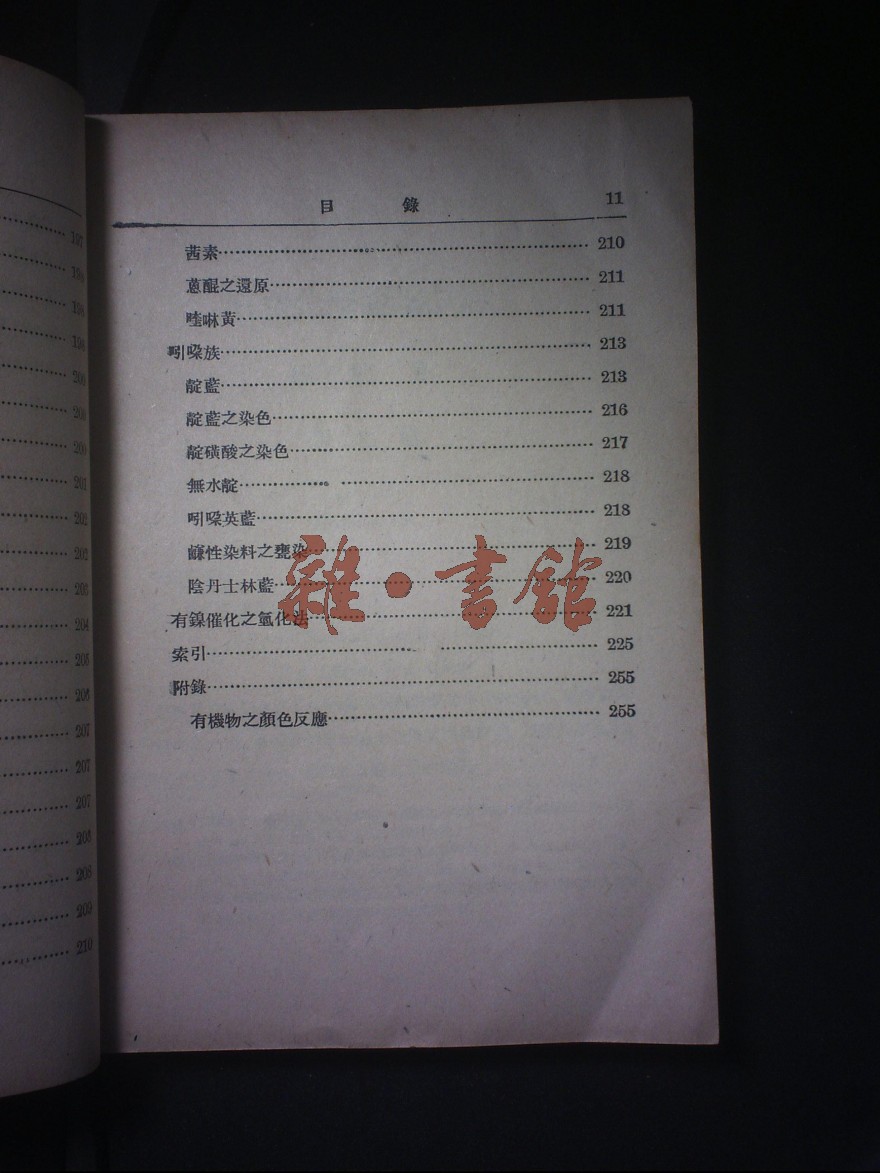 197
198
198
199
200
200
200
201
202
202
203
204
205
206
207
207
207
208
208
209
210
目 錄 11
茜素 210
蒽醌之還原 211
喹啉黃 211
吲哚族 213
靛藍 213
靛藍之染色 216
靛磺酸之染色 217
無水靛 218
吲哚英藍 218
鹼性染料之甕染 219
陰丹士林藍 220
有鎳催化之氫化法 221
索引 225
附錄 255
有機物之顏色反應 255
雜·書館